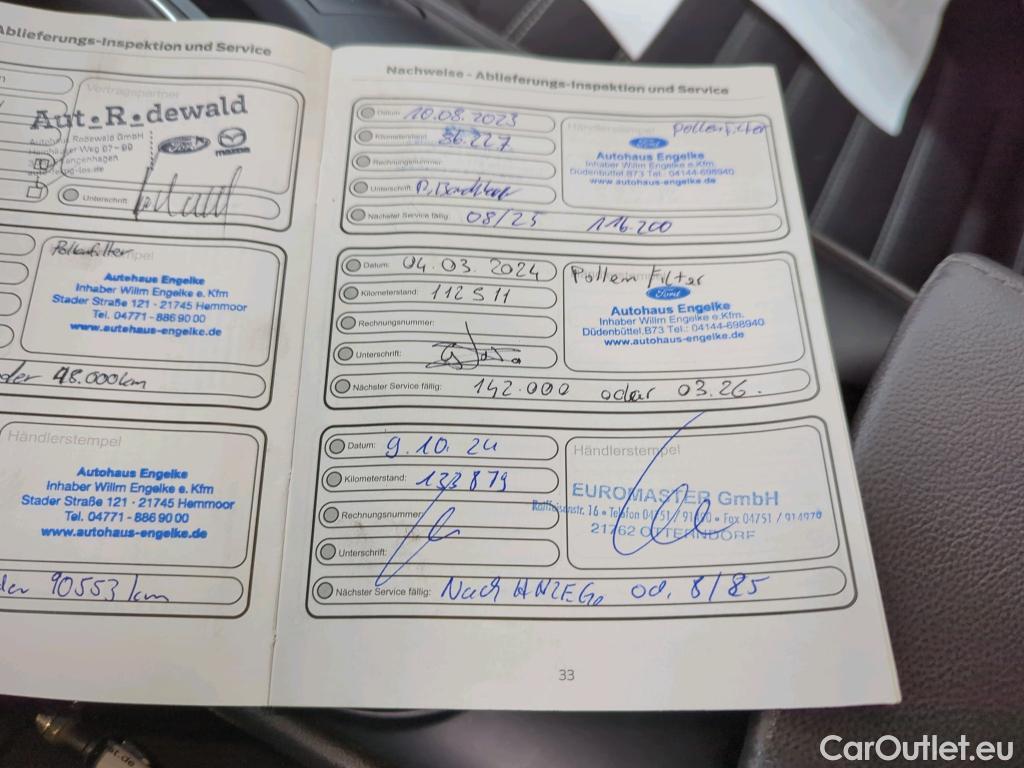 Ablieferungs-Inspektion und Service
Vertragspartner
Aut•R•dewald
Autohaus Rodewald GmbH
Ford
mazda
Unterschrift
Pollenfilter
Autohaus Engelke
Inhaber Willm Engelke e. Kfm
Stader Straße 121 · 21745 Hemmoor
Tel. 04771 - 886 90 00
www.autohaus-engelke.de
48.000km
Händlerstempel
Autohaus Engelke
Inhaber Willm Engelke e. Kfm
Stader Straße 121 · 21745 Hemmoor
Tel. 04771 - 886 90 00
www.autohaus-engelke.de
90553/km
Nachweise - Ablieferungs-Inspektion und Service
Datum: 10.08.2023
Kilometerstand: 86.227
Rechnungsnummer:
Unterschrift:
Nächster Service fällig: 08/25 116.200
Händlerstempel
Pollenfilter
Ford
Autohaus Engelke
Inhaber Willm Engelke e.Kfm.
Düdenbüttel.B73 Tel.: 04144-698940
www.autohaus-engelke.de
Datum: 04.03.2024
Kilometerstand: 112511
Rechnungsnummer:
Unterschrift:
Nächster Service fällig: 142.000 oder 03.26.
Pollen Filter
Ford
Autohaus Engelke
Inhaber Willm Engelke e.Kfm.
Düdenbüttel.B73 Tel.: 04144-698940
www.autohaus-engelke.de
Datum: 9.10.24
Kilometerstand: 133879
Rechnungsnummer:
Unterschrift:
Nächster Service fällig: Nach ANZEGE od. 8/25
Händlerstempel
EUROMASTER GmbH
Raiffeisenstr. 16 • Telefon 04751 / 91 • Fax 04751 / 914979
21762 OTTERNDORF
33
CarOutlet.eu